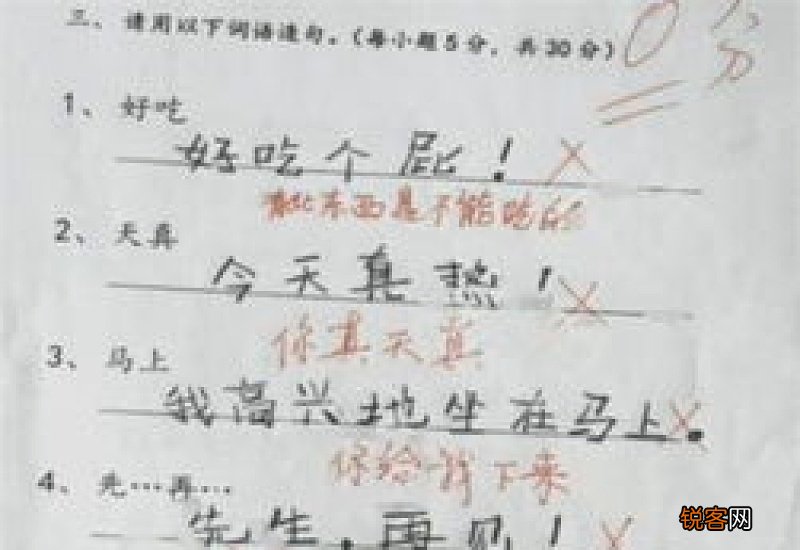 三、请用以下词语造句。(每小题5分，共30分) 0分
1、好吃
好吃个屁！
有些东西是不能吃的
2、天真
今天真热！
你真天真
3、马上
我高兴地坐在马上.
你给我下来
4、先…再…
先生，再见！
锐客网